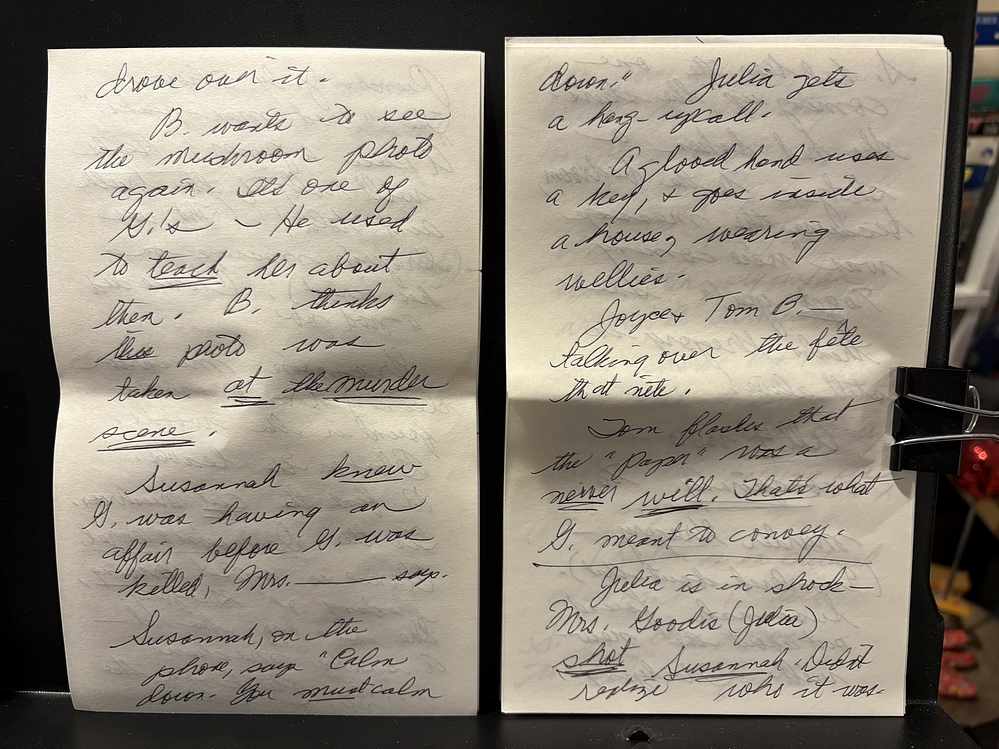 drove over it.
B. wants to see
the mushroom photo
again. It's one of
G.'s – He used
to teach her about
them. B. thinks
this photo was
taken at the murder
scene.
Susannah knew
G. was having an
affair before G. was
killed, Mrs. ——— says.
Susannah, on the
phone, says "Calm
down. You must calm
down." Julia gets
a hang-up call.
A gloved hand uses
a key, & goes inside
a house, wearing
wellies.
Joyce & Tom B. —
talking over the fête
that nite.
Tom flashes that
the "paper" was a
newer will. That's what
G. meant to convey.
Julia is in shock –
Mrs. Goodis (Julia)
shot Susannah. Didn't
realize who it was.